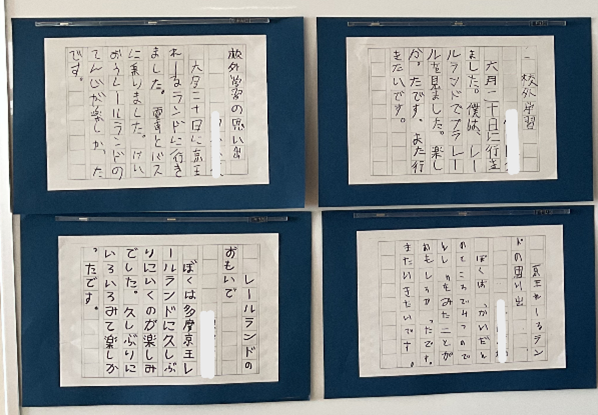 校外学習の思い出
六月二十日に京王
れーるランドに行き
ました。電車とバス
に乗りました。けい
おうレールランドの
てんじが楽しかった
です。
校外学習
六月二十日に行き
ました。僕は、レー
ルランドでプラレー
ルを見ました。楽し
かったです。また行
きたいです。
レールランドの
おもいで
ぼくは多摩京王レ
ールランドに久しぶ
りにいくのが楽しみ
でした。久しぶりに
いろいろみて楽しか
ったです。
京王れーるラン
ドの思い出
ぼくは、かいだん
のところで4つので
をみたことが
おもしろかったです。
またいきたいです。